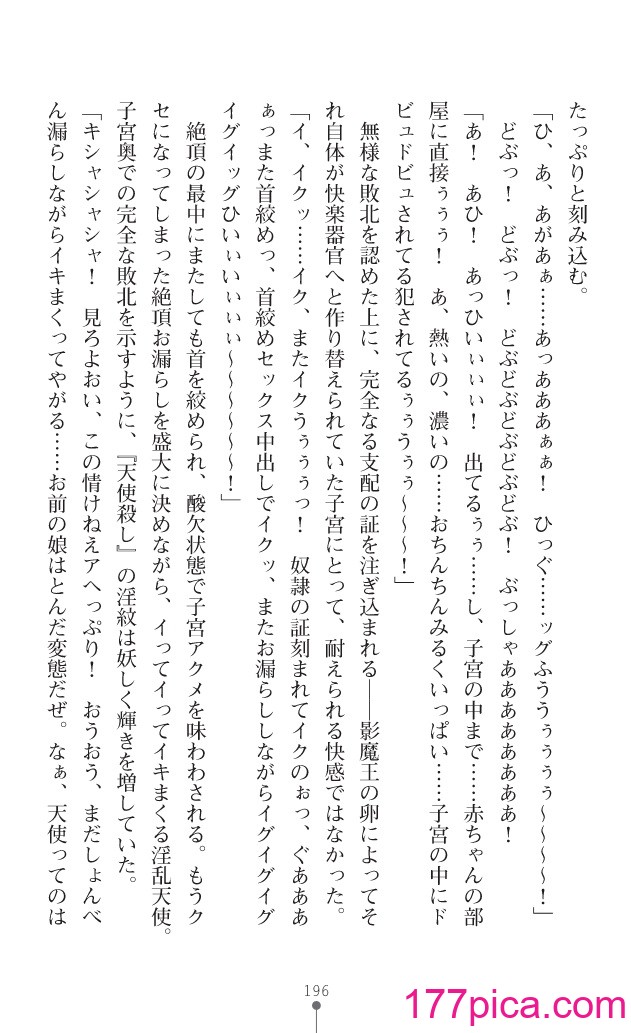 たっぷりと刻み込む。
「ひ、あ、あがあぁ……あっあああぁぁ！　ひっぐ……ッグふううぅぅぅぅ～～～～！」
　どぶっ！　どぶっ！　どぶどぶどぶどぶどぶ！　ぶっしゃああああああああ！
「あ！　あひ！　あっひいぃぃぃ！　出てるぅぅ……し、子宮の中まで……赤ちゃんの部
屋に直接ぅぅぅ！　あ、熱いの、濃いの……おちんちんみるくいっぱい……子宮の中にド
ビュドビュされてる犯されてるぅぅうぅぅ～～～！」
　無様な敗北を認めた上に、完全なる支配の証を注ぎ込まれる――影魔王の卵によってそ
れ自体が快楽器官へと作り替えられていた子宮にとって、耐えられる快感ではなかった。
「イ、イクッ……イク、またイクうぅぅぅっ！　奴隷の証刻まれてイクのぉっ、ぐあああ
ぁっまた首絞めっ、首絞めセックス中出しでイクッ、またお漏らししながらイグイグイグ
イグイッグひいぃいぃいぃぃ～～～～～～！」
　絶頂の最中にまたしても首を絞められ、酸欠状態で子宮アクメを味わわされる。もうク
セになってしまった絶頂お漏らしを盛大に決めながら、イってイってイキまくる淫乱天使。
子宮奥での完全な敗北を示すように、『天使殺し』の淫紋は妖しく輝きを増していた。
「キシャシャシャ！　見ろよおい、この情けねえアヘっぷり！　おうおう、まだしょんべ
ん漏らしながらイキまくってやがる……お前の娘はとんだ変態だぜ。なぁ、天使ってのは
196
177pica.com